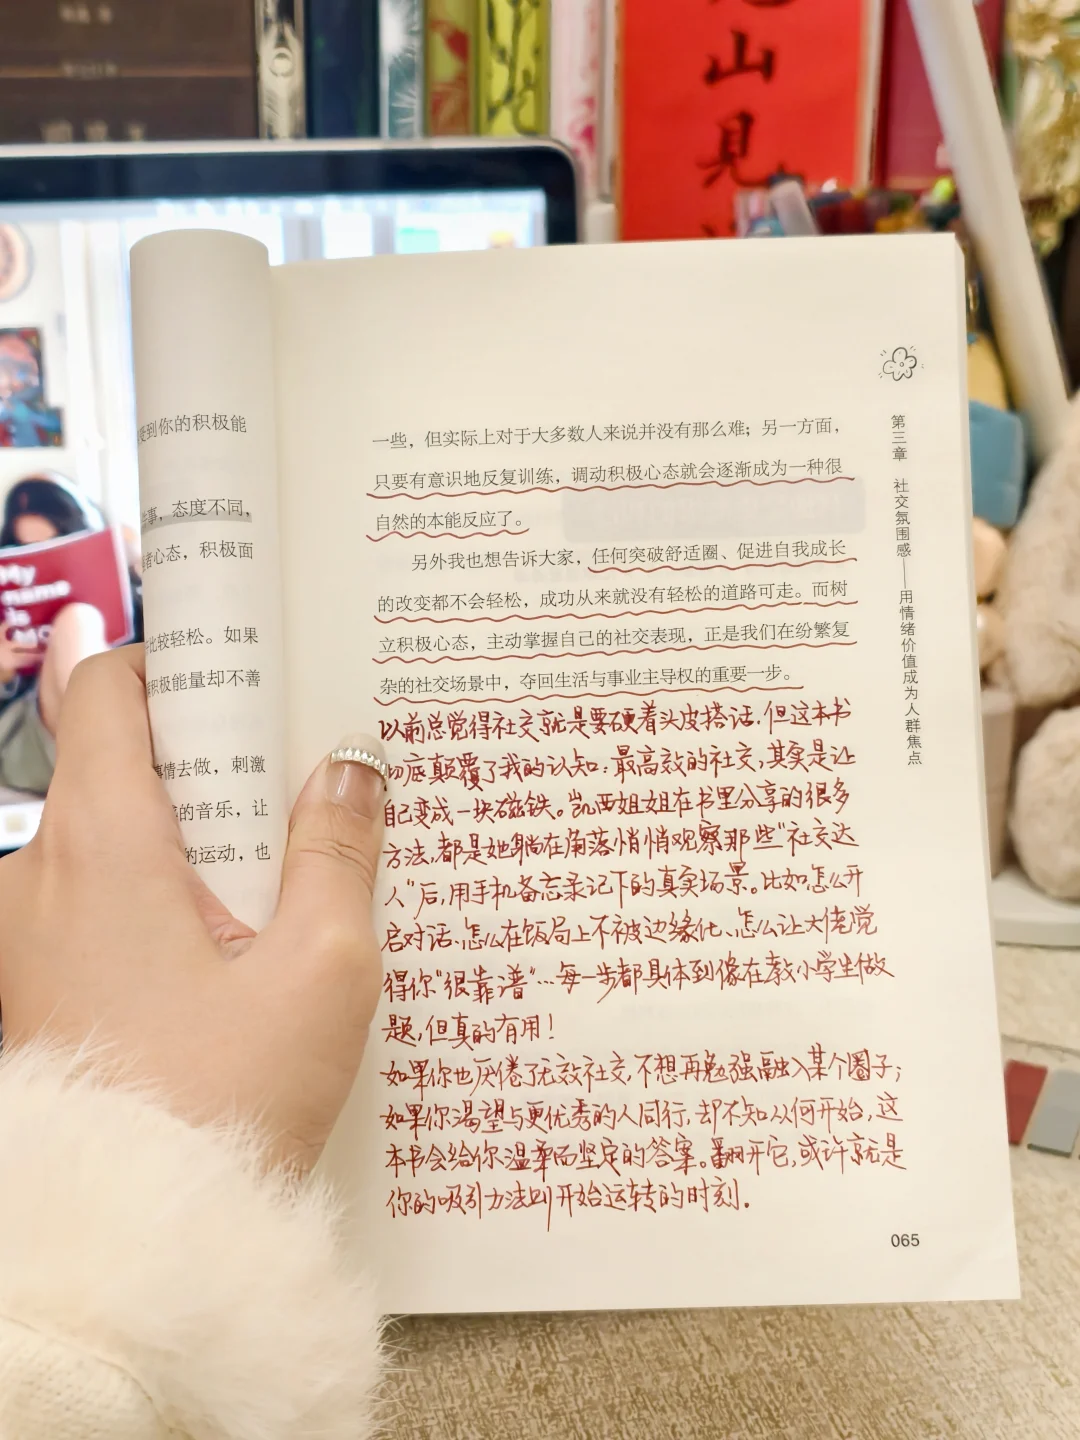 山
見
My
name
is
到你的积极能
事，态度不同，
者心态，积极面
比较轻松。如果
积极能量却不善
事情去做，刺激
的音乐，让
的运动，也
一些，但实际上对于大多数人来说并没有那么难；另一方面，
只要有意识地反复训练，调动积极心态就会逐渐成为一种很
自然的本能反应了。
另外我也想告诉大家，任何突破舒适圈、促进自我成长
的改变都不会轻松，成功从来就没有轻松的道路可走。而树
立积极心态，主动掌握自己的社交表现，正是我们在纷繁复
杂的社交场景中，夺回生活与事业主导权的重要一步。
以前总觉得社交就是要硬着头皮搭话，但这本书
彻底颠覆了我的认知：最高效的社交，其实是让
自己变成一块磁铁。凯西姐姐在书里分享的很多
方法，都是她躺在角落悄悄观察那些"社交达
人"后，用手机备忘录记下的真实场景。比如怎么开
启对话、怎么在饭局上不被边缘化、怎么让大佬觉
得你"很靠谱"…每一步都具体到像在教小学生做
题，但真的有用！
如果你也厌倦了无效社交，不想再勉强融入某个圈子；
如果你渴望与更优秀的人同行，却不知从何开始，这
本书会给你温柔而坚定的答案。翻开它，或许就是
你的吸引力法则开始运转的时刻。
第三章 社交氛围感——用情绪价值成为人群焦点
065